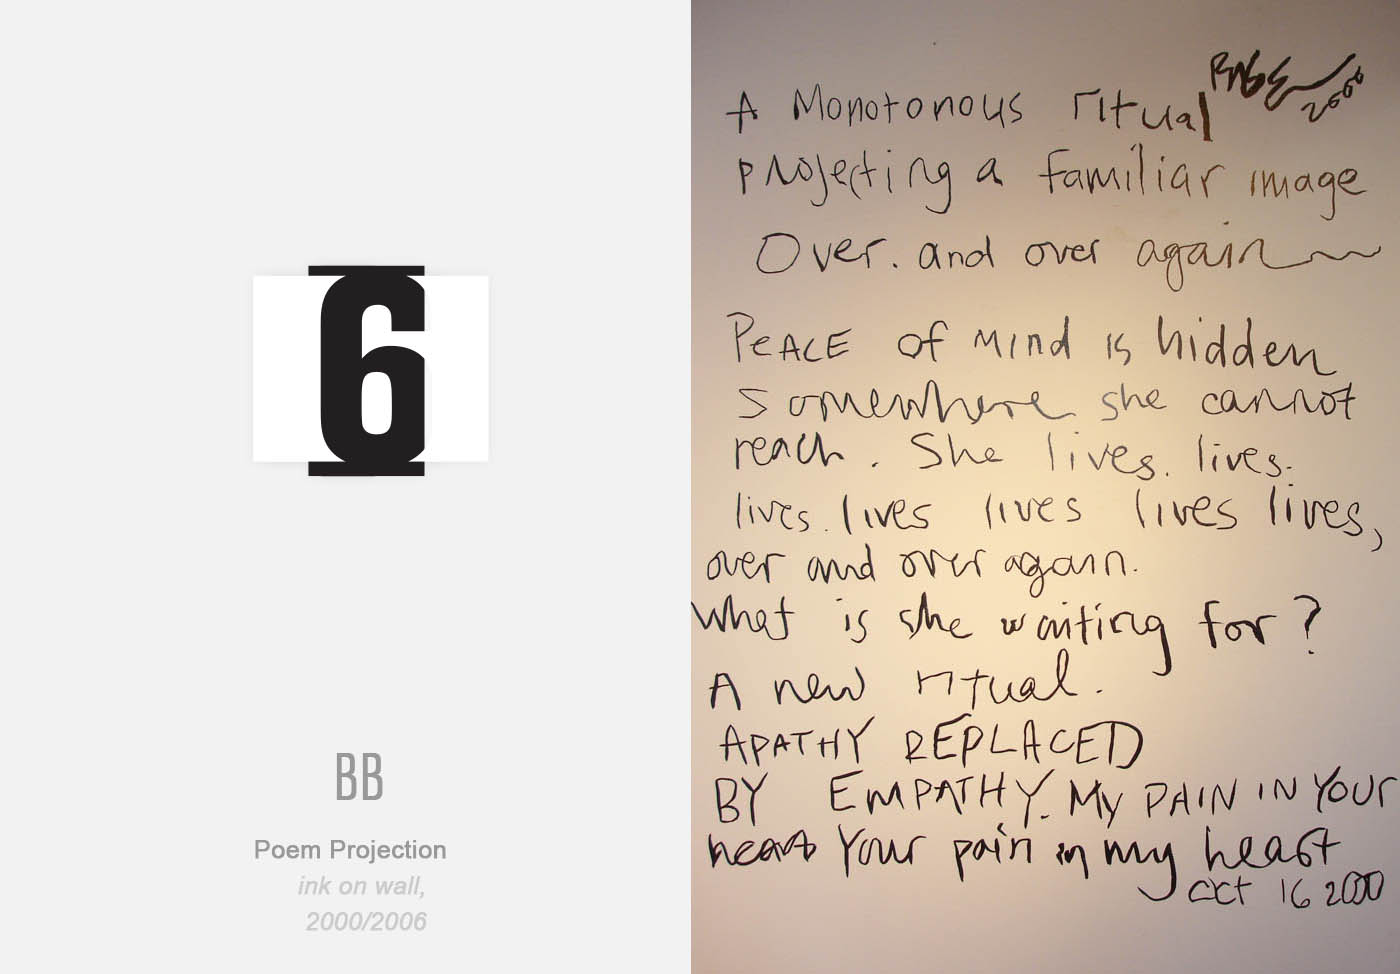 6
BB
Poem Projection
ink on wall,
2000/2006
A Monotonous ritual
projecting a familiar image
Over. and over again
PeACE of MIND is hidden
somewhere she cannot
reach. She lives. lives.
lives. lives lives lives lives,
over and over again.
What is she waiting for?
A new ritual.
APATHY REPLACED
BY EMPATHY. My PAIN IN YOUr
heart Your pain in my heart
Oct 16 2000